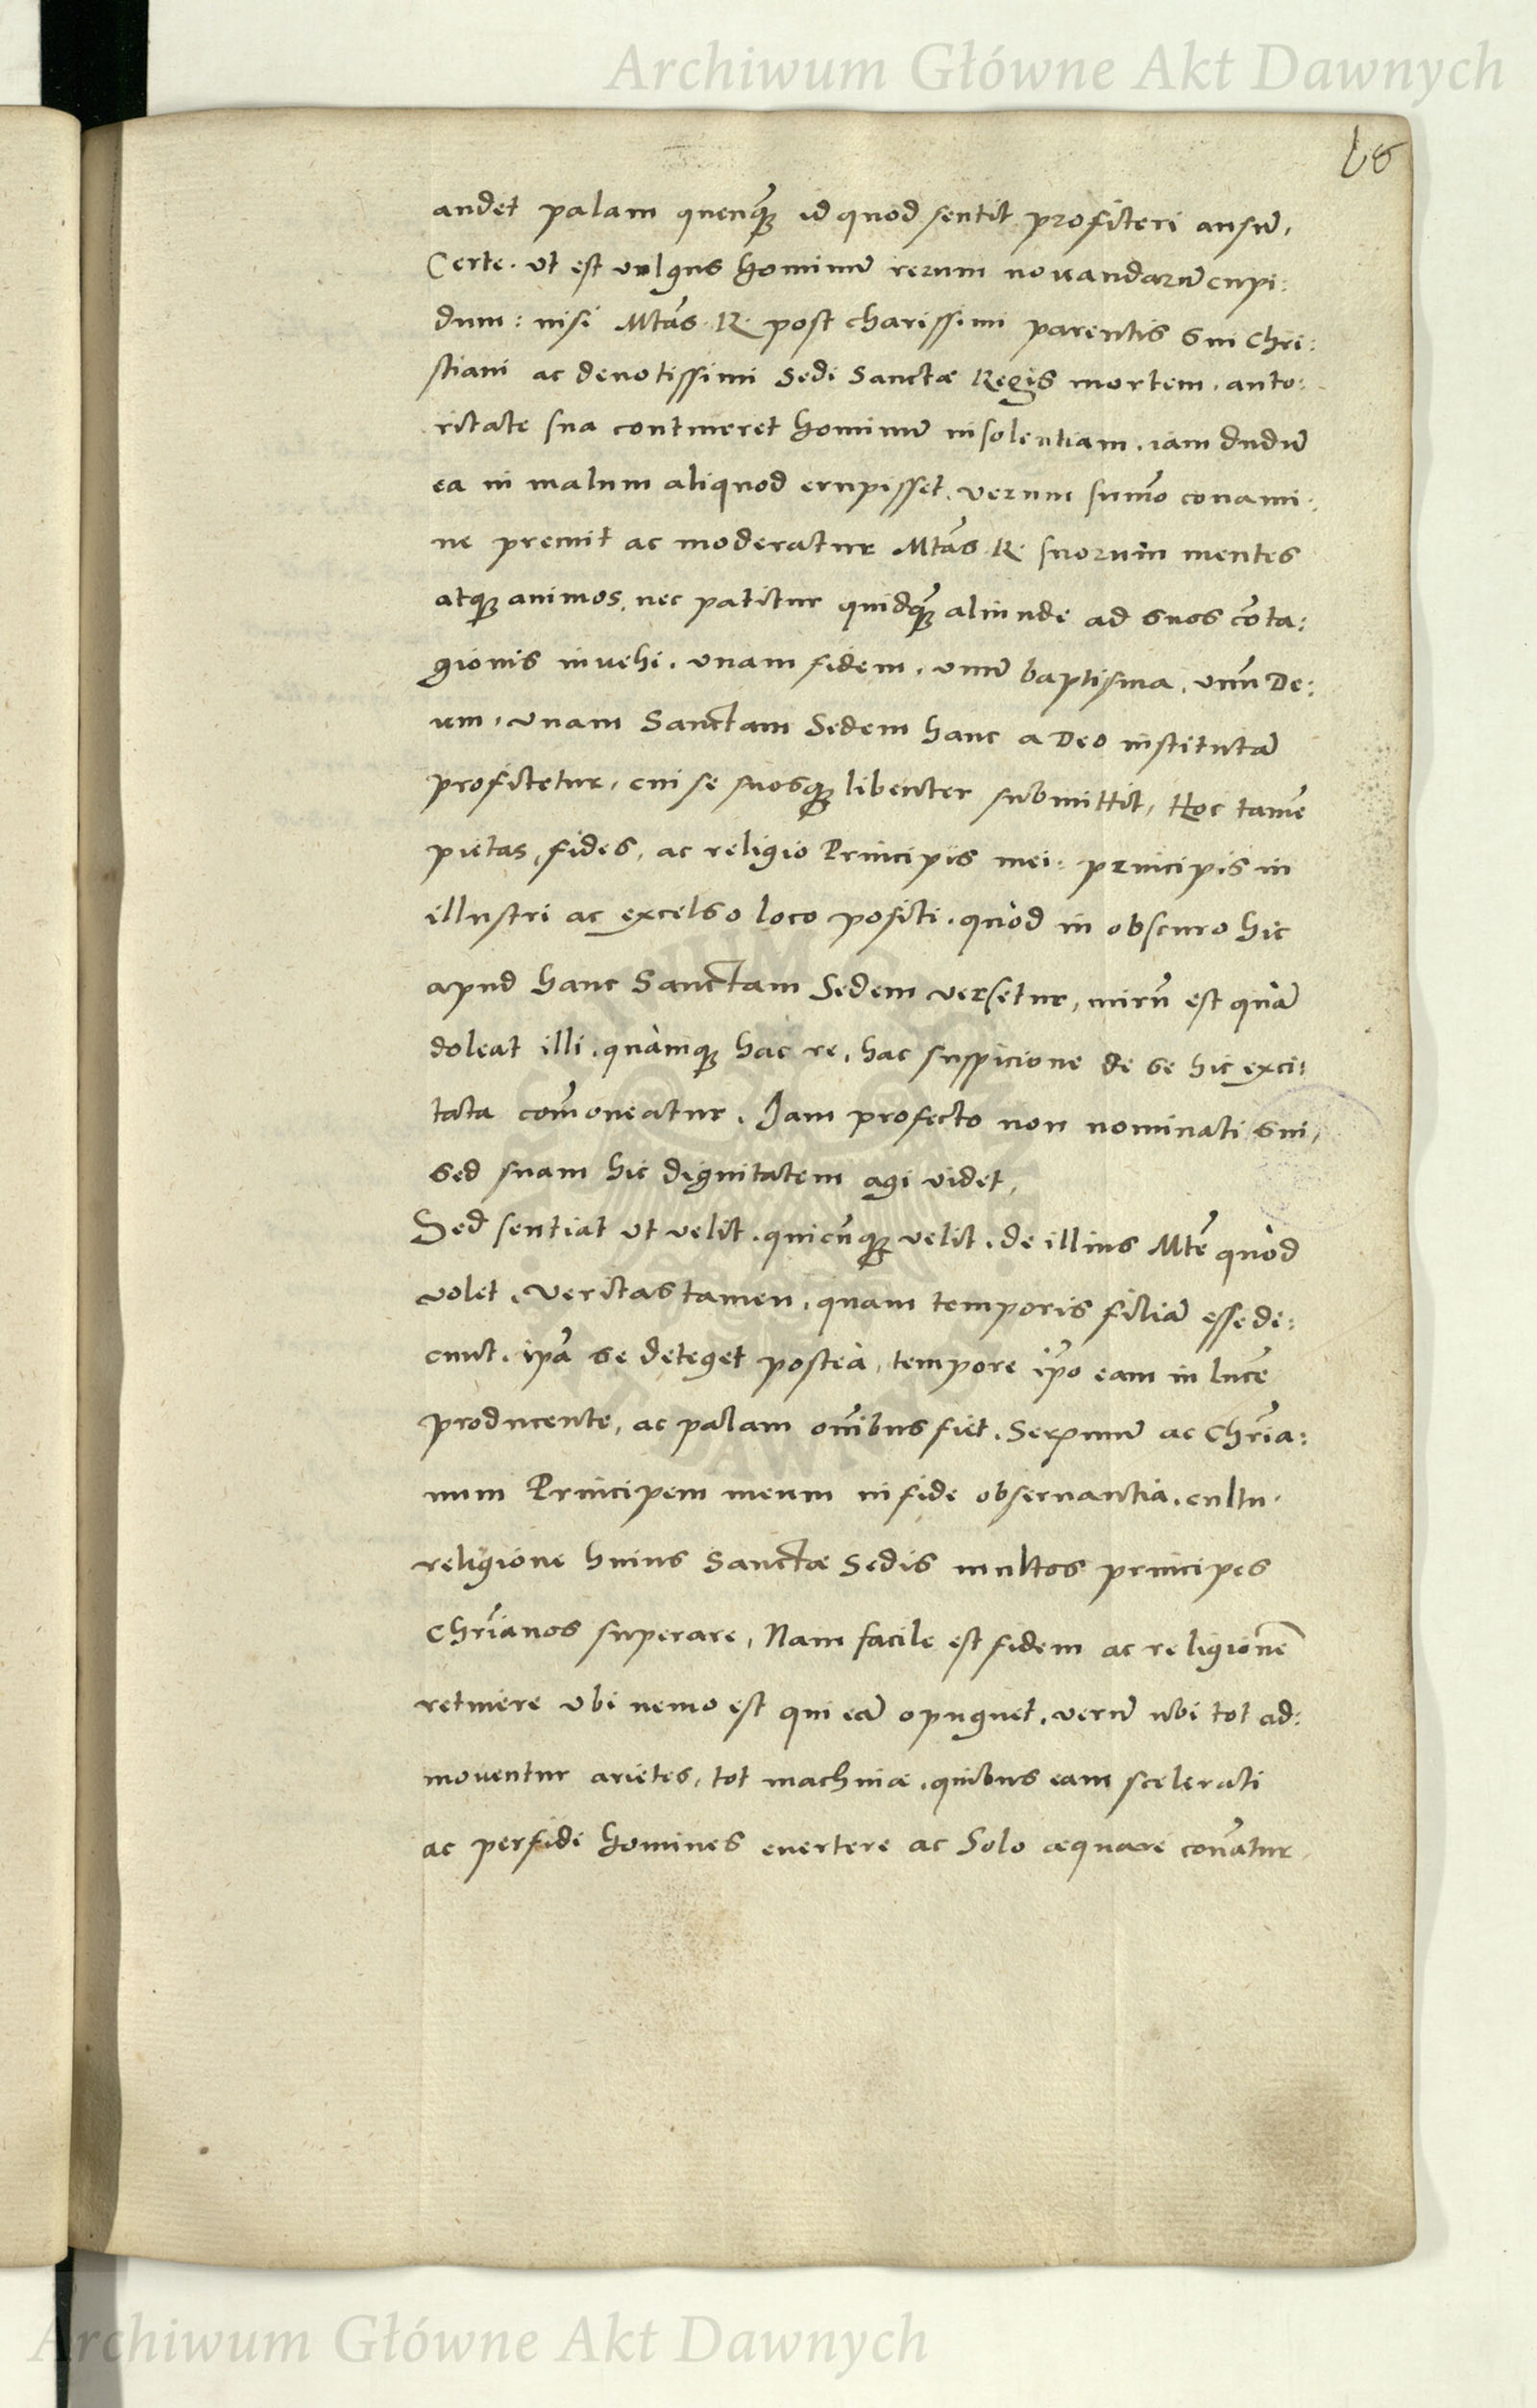 Archiwum Główne Akt Dawnych
68
audet palam quenq̃ꝫ id quod sentit profiteri ansũ,
Certe. ut est vulgus hominũ rerum novandarũ cupi:
dum: nisi Mtãs. R. post charissimi parentis sui Chri:
stiani ac devotissimi Sedi Sanctæ Regis mortem. auto:
ritate sua contineret hominũ insolentiam. iam dudũ
ea in malum aliquod erupisset. verum sum̃o conami:
ne premit ac moderatur Mtãs. R. suorum mentes
atqꝫ animos, nec patitur quidq̃ꝫ aliunde ad suos cõta:
gionis invehi. unam fidem. unũ baptisma. unũ De:
um. unam Sanctam Sedem hanc a Deo institutã
profitetur, cui se suosqꝫ libenter submittit, Hoc tamẽ
pietas, fides, ac religio Principis mei: principis in
illustri ac excelso loco positi. quòd in obscuro hic
apud hanc Sanctam Sedem versetur, mirũ est quã
doleat illi. quàmqꝫ hac re, hac suspicione de se hic exci:
tata com̃oveatur. Jam profecto non nominati sui,
sed suam hic dignitatem agi videt,
Sed sentiat ut velit. quicũqꝫ velit. de illius Mtẽ quòd
volet. Veritas tamen, quam temporis filiã esse di:
cunt. ipã se deteget posteà, tempore ip̃o eam in lucẽ
producente, ac palam om̃ibus fiet. Serenmũ ac Chr̃ia:
num Principem meum in fide observantia. cultu.
religione huius Sanctæ Sedis multos principes
Chr̃ianos superare, Nam facile est fidem ac religionẽ
retinere ubi nemo est qui eã opugnet. verũ ubi tot ad:
moventur arietes, tot machinæ. quibus eam scelerati
ac perfidi homines evertere ac Solo æquare conãtur.
Archiwum Główne Akt Dawnych